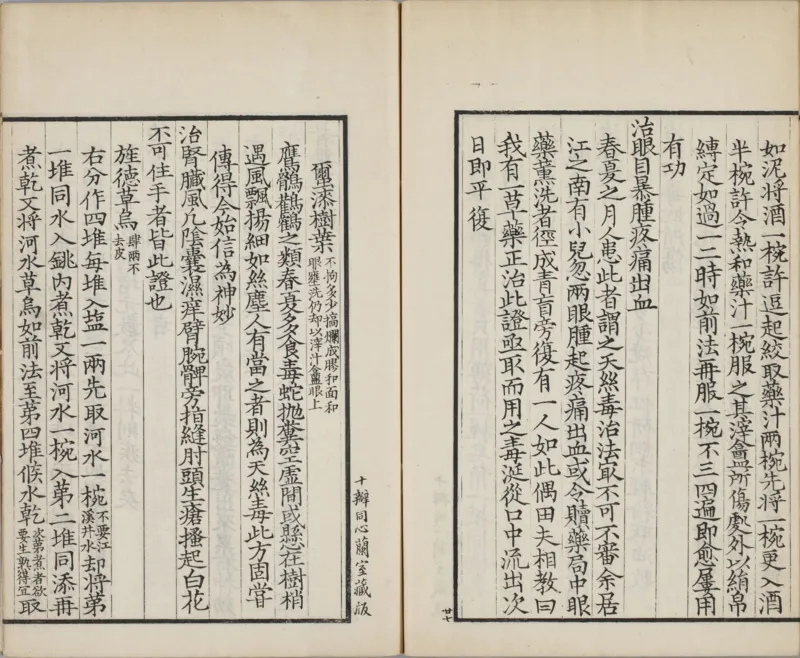 如泥将酒一椀許逗起絞取藥汁兩椀先將一椀更入酒
半椀許令熱和藥汁一椀服之其滓罨所傷處外以絹帛
縳定如過一二時如前法再服一椀不三四遍即愈屢用
有功
治眼目暴腫疼痛出血
春夏之月人患此者謂之天絲毒治法取不可不審余居
江之南有小兒忽兩眼腫起疼痛出血或令贖藥局中眼
藥熏洗者徑成青盲旁復有一人如此偶田夫相教曰
我有一草藥正治此證亟取而用之毒涎從口中流出次
日即平復
廿七
十瓣同心蘭室藏版
壐桼樹葉不拘多少搗爛成膠和面和眼壅洗仍却以滓汁罨眼上
鷹鶻鸛鶴之類春衰多食毒蛇抛糞空虛間或懸在樹梢
遇風飄揚細如絲塵人有當之者則為天絲毒此方固甞
傳得今始信為神妙
治腎臟風凡陰囊濕痒臂腕髀旁指縫肘頭生瘡搔起白花
不可住手者皆此證也
旌德草烏肆兩不去皮
右分作四堆每堆入塩一兩先取河水一椀不要江溪井水却將第
一堆同水入銚內煮乾又將河水一椀入第二堆同添再
煮乾又將河水草烏如前法至第四堆候水乾次第煮者欲要生熟得宜取